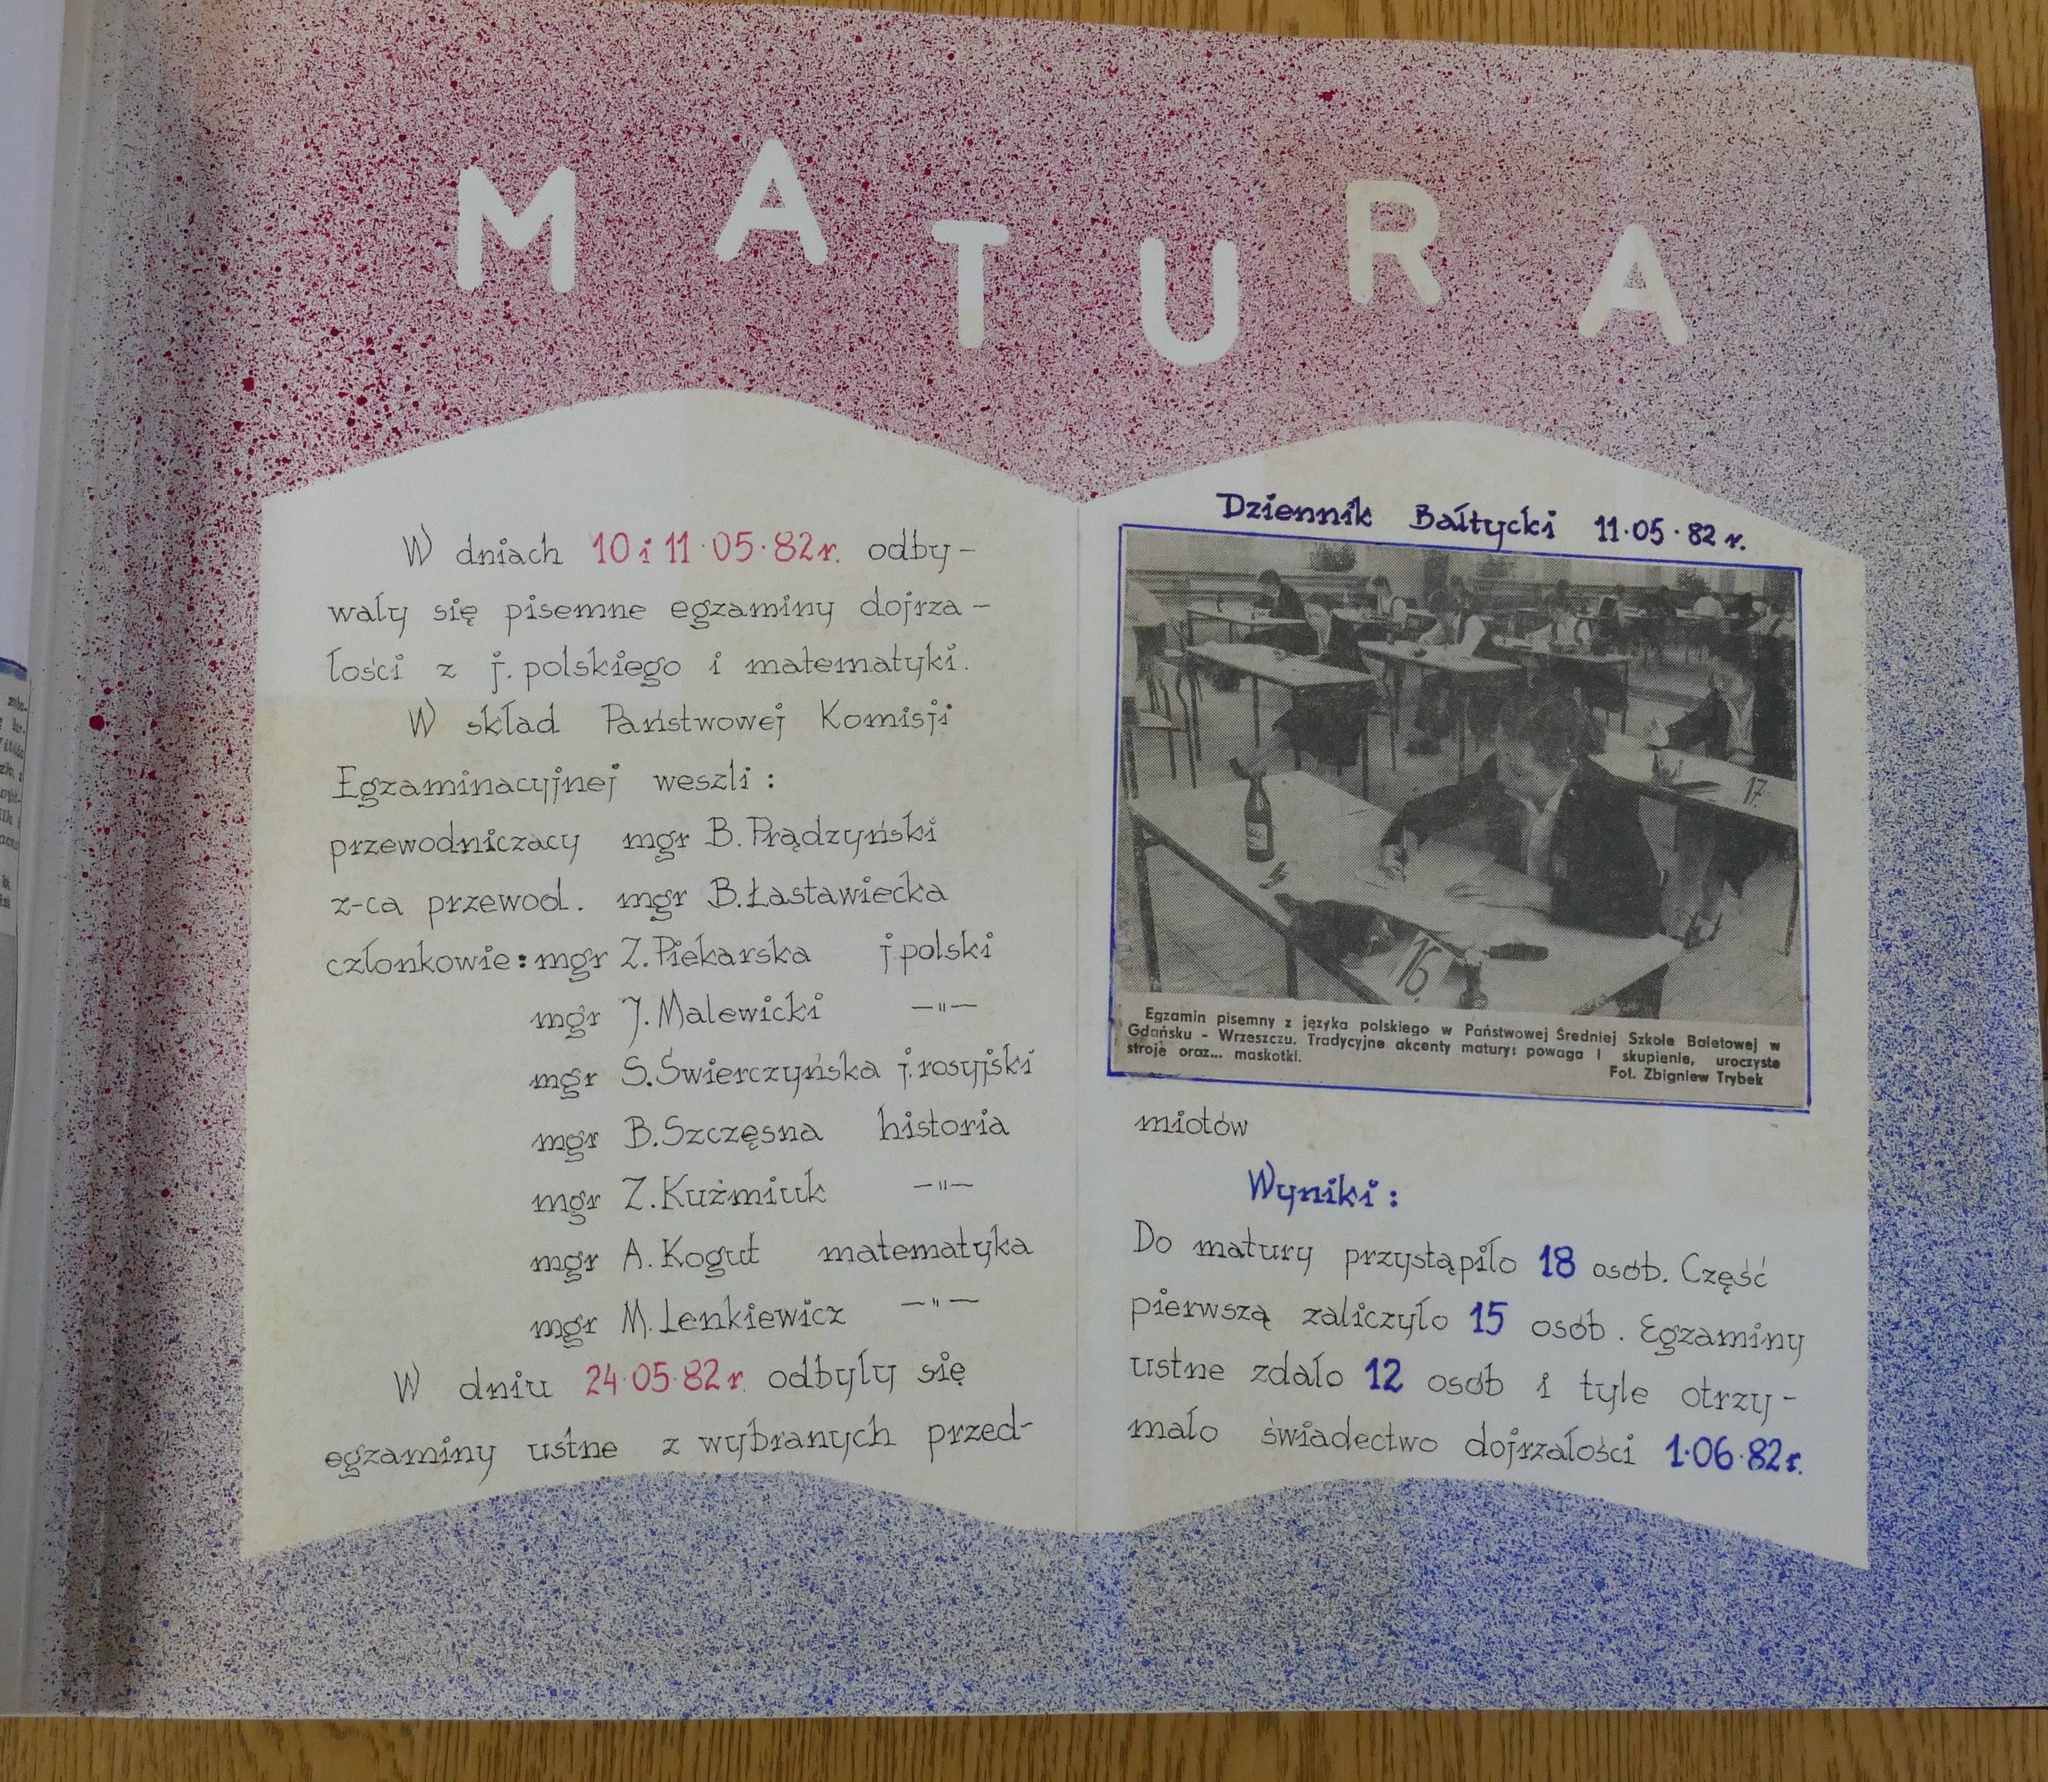 MATURA
W dniach 10 i 11·05·82r. odby-
wały się pisemne egzaminy dojrza-
łości z j. polskiego i matematyki.
W skład Państwowej Komisji
Egzaminacyjnej weszli:
przewodniczacy mgr B. Prądzyński
z-ca przewod. mgr B. Łastawiecka
członkowie: mgr Z. Piekarska j. polski
mgr J. Malewicki —"—
mgr S. Świerczyńska j. rosyjski
mgr B. Szczęsna historia
mgr Z. Kuźmiuk —"—
mgr A. Kogut matematyka
mgr M. Lenkiewicz —"—
W dniu 24·05·82r. odbyły się
egzaminy ustne z wybranych przed-
Dziennik Bałtycki 11·05·82 r.
17.
16.
Egzamin pisemny z języka polskiego w Państwowej Średniej Szkole Baletowej w
Gdańsku - Wrzeszczu. Tradycyjne akcenty matury: powaga i skupienie, uroczyste
stroje oraz... maskotki.
Fot. Zbigniew Trybek
miotów
Wyniki:
Do matury przystąpiło 18 osób. Część
pierwszą zaliczyło 15 osób. Egzaminy
ustne zdało 12 osób i tyle otrzy-
mało świadectwo dojrzałości 1·06·82r.